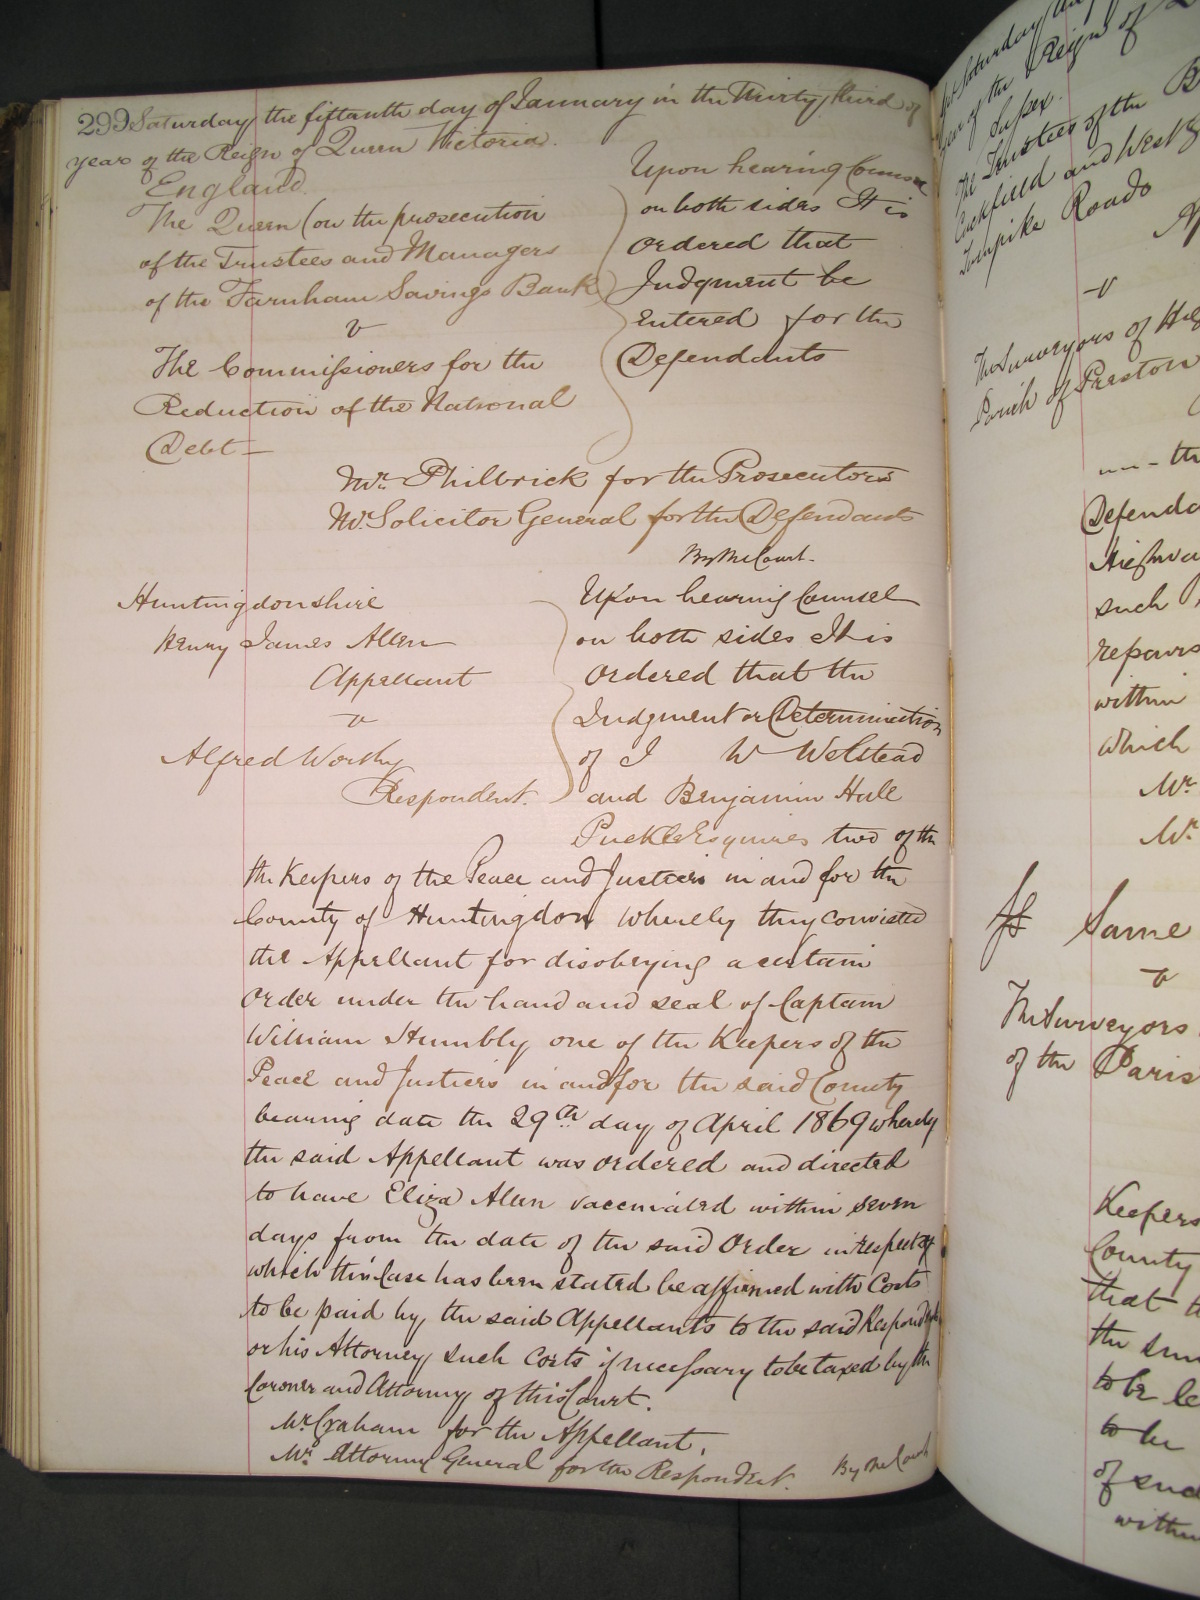 299 Saturday the fifteenth day of January in the Thirty third of
year of the Reign of Queen Victoria.
England.
The Queen (on the prosecution
of the Trustees and Managers
of the Farnham Savings Bank)
v
The Commissioners for the
Reduction of the National
Debt —
Upon hearing Counsel
on both sides It is
Ordered that
Judgment be
Entered for the
Defendants
Mr. Philbrick for the Prosecutors
Mr. Solicitor General for the Defendants
By the Court.
Huntingdonshire
Henry James Allen
Appellant
v
Alfred Worthy
Respondent.
Upon hearing Counsel
on both sides It is
Ordered that the
Judgment or Determination
of I W Welstead
and Benjamin Hale
Puckle Esquires two of the
the Keepers of the Peace and Justices in and for the
County of Huntingdon whereby they convicted
the Appellant for disobeying a certain
Order under the hand and seal of Captain
William Humbly one of the Keepers of the
Peace and Justices in and for the said County
bearing date the 29th day of April 1869 whereby
the said Appellant was ordered and directed
to have Eliza Allen vaccinated within seven
days from the date of the said Order in respect of
which this Case has been stated be affirmed with Costs
to be paid by the said Appellants to the said Respondent
or his Attorney such Costs if necessary to be taxed by the
Coroner and Attorney of this Court.
Mr. Graham for the Appellant.
Mr. Attorney General for the Respondent.
By the Court
for Saturday the
year of the Reign of
Sussex.
The Trustees of the B
Cuckfield and West G
Turnpike Roads
Ap
v
The Surveyors of Hig
Parish of Preston
the
Defenda
Highwa
such
repairs
within
which
Mr.
Mr.
Same
v
The Surveyors
of the Paris
Keepers
County
that t
the sum
to be le
to be
of suc
within